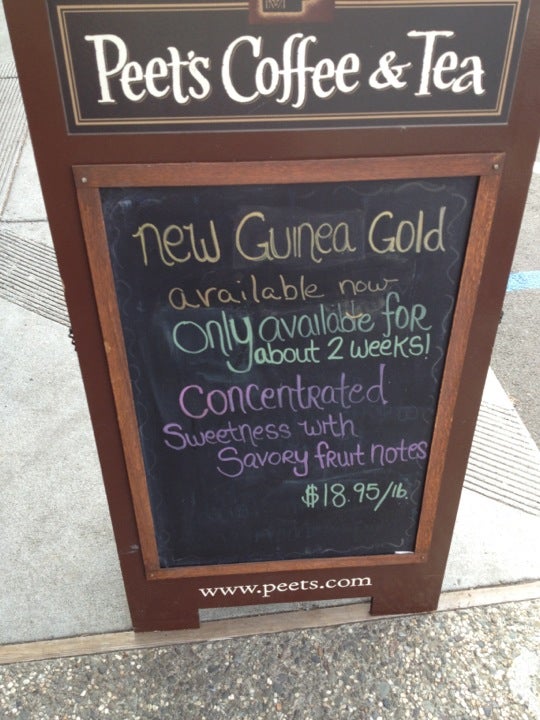 Peet's Coffee & Tea
new Guinea Gold
available now
Only available for
about 2 weeks!
Concentrated
Sweetness with
Savory fruit notes
$18.95/lb.
www.peets.com